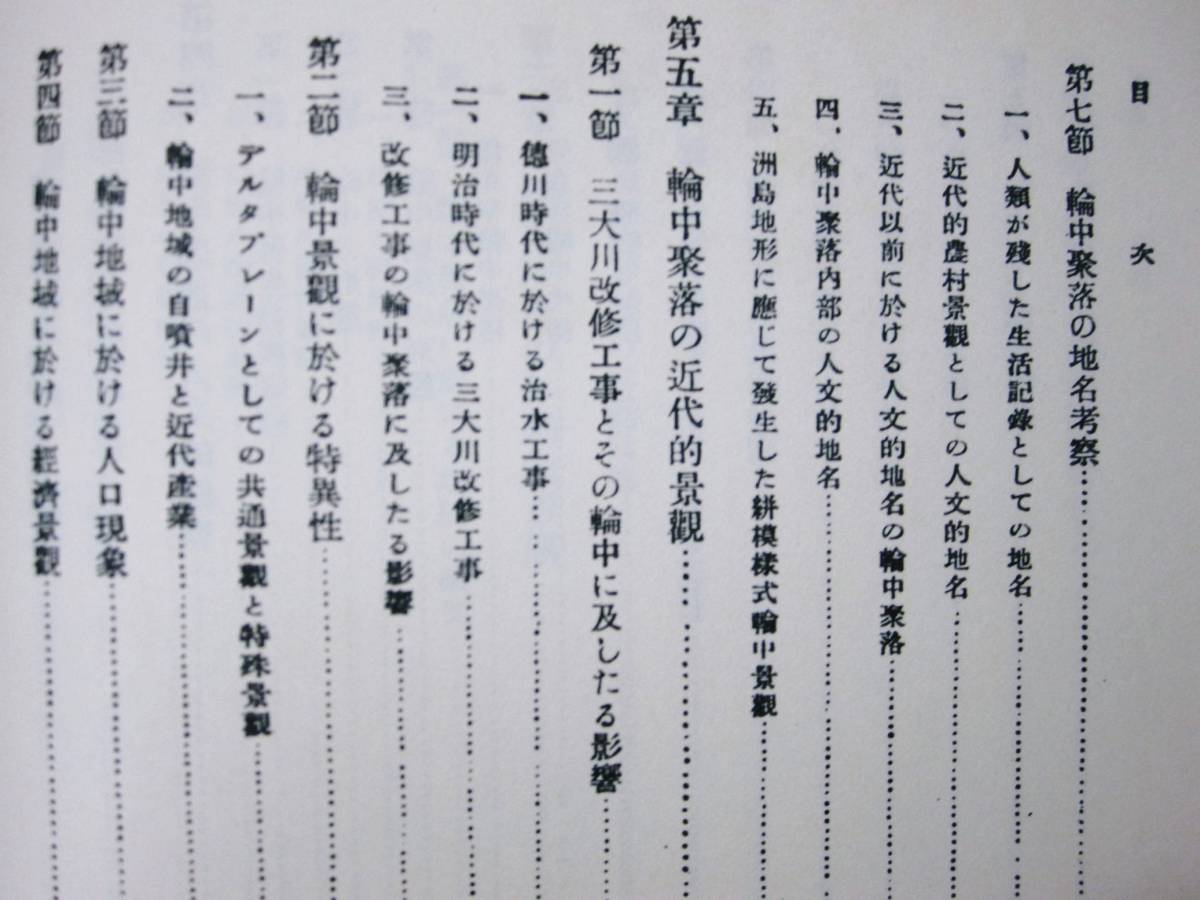 目次
第七節　輪中聚落の地名考察……………………
一、人類が殘した生活記錄としての地名……………………
二、近代的農村景觀としての人文的地名……………………
三、近代以前に於ける人文的地名の輪中聚落……………………
四、輪中聚落內部の人文的地名……………………
五、洲島地形に應じて發生した絣模樣式輪中景觀……………………
第五章　輪中聚落の近代的景觀……………………
第一節　三大川改修工事とその輪中に及したる影響……………………
一、德川時代に於ける治水工事……………………
二、明治時代に於ける三大川改修工事……………………
三、改修工事の輪中聚落に及したる影響……………………
第二節　輪中景觀に於ける特異性……………………
一、デルタプレーンとしての共通景觀と特殊景觀……………………
二、輪中地域の自噴井と近代產業……………………
第三節　輪中地域に於ける人口現象……………………
第四節　輪中地域に於ける經濟景觀……………………